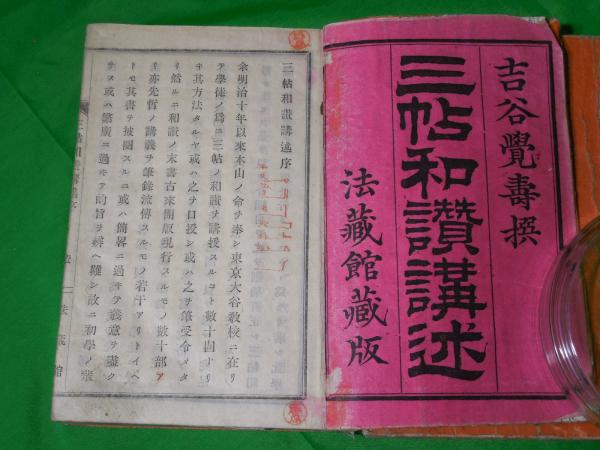 吉谷覺壽撰
三帖和讚講述
法藏館藏版
三帖和讃講述序
余明治十年以來本山ノ命ヲ奉シ東京大谷敎校ニ在リ
テ學徒ノ爲ニ三帖ノ和讃ヲ講授スルコト數十回ナリ
キ其方法タルヤ或ハ之ヲ口授シ或ハ之ヲ筆受令メタ
リ然ルニ和讃ノ末書古來開版現行スルモノ數十部ア
リ亦先哲ノ講義ヲ筆錄流傳スルモノ若干アリトイヘ
トモ其書ヲ披閱スルニ或ハ簡畧ニ過キテ義意ヲ盡ク
サス或ハ繁廣ニ過キテ的旨ヲ辨ヘ難シ故ニ初學ノ輩